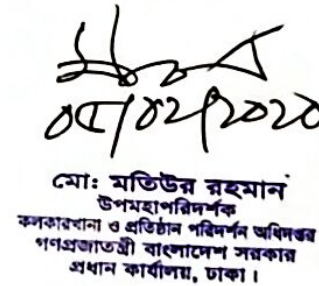 ০৫/০২/২০২০
মোঃ মতিউর রহমান
উপমহাপরিদর্শক
কলকারখানা ও প্রতিষ্ঠান পরিদর্শন অধিদপ্তর
গণপ্রজাতন্ত্রী বাংলাদেশ সরকার
প্রধান কার্যালয়, ঢাকা।